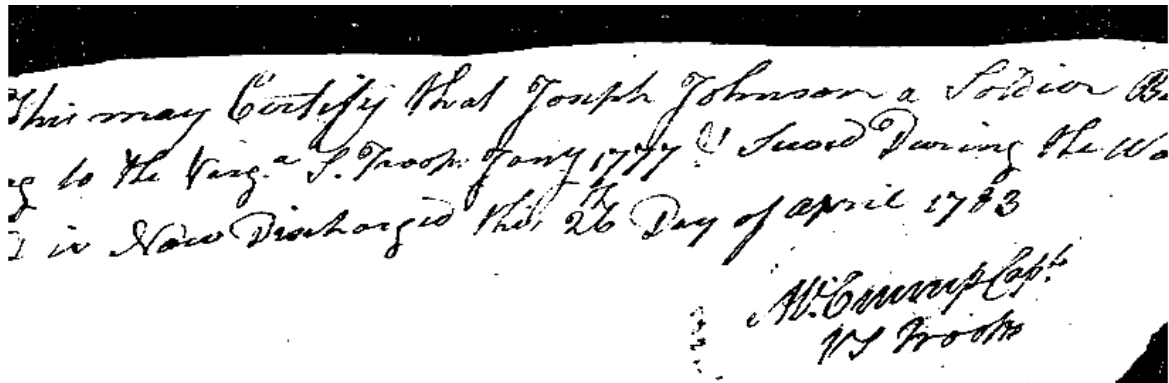 This may Certify that Joseph Johnson a Soldier Be
ng to the Virg.a S. Troops Jany 1777 Served During the Wa
is Now Discharged this 26th Day of april 1783
Crump Capt.
VS Troops